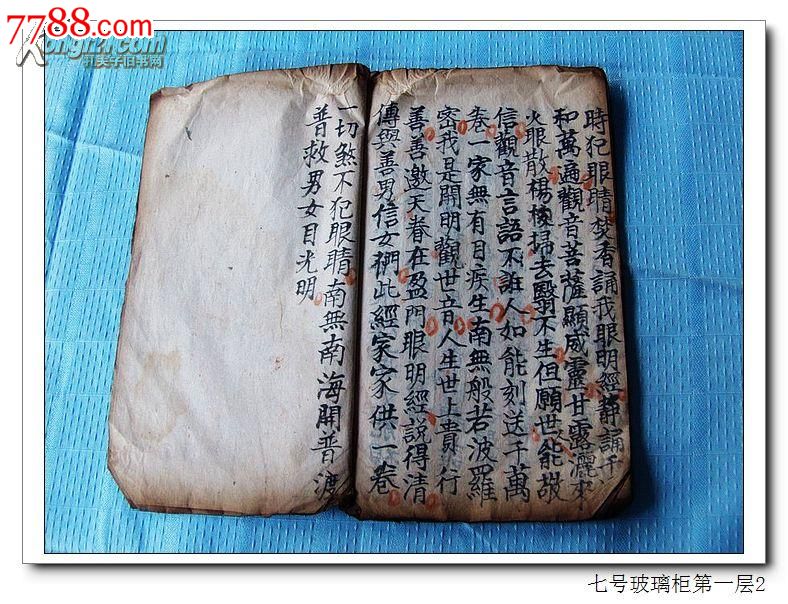 7788.com
Kongfz.com
孔夫子旧书网
時犯眼睛焚香誦我眼明經靜誦千
和萬遍觀音菩薩顯威靈甘露灑來
火眼散楊柳掃去翳不生但願世能敬
信觀音言語不誑人如能刻送千萬
卷一家無有目疾生南無般若波羅
密我是開明觀世音人生世上貴行
善善邀天眷在盈門眼明經説得清
傳與善男信女們此經家家供一卷
一切煞不犯眼睛南無南海開普渡
普救男女目光明
七号玻璃柜第一层2